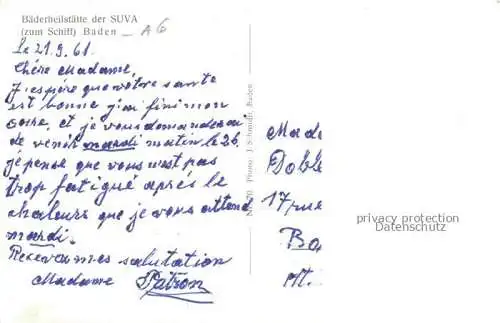 Bäderheilstätte der SUVA
(zum Schiff) Baden – AG
Le 21.9.61.
Chère Madame,
J'espère que votre santé
est bonne j'ai fini mon
cure, et je vous demanderai
de venir mardi matin le 26,
je pense que vous n'est pas
trop fatigué après le
chaleurs que je vous attend
mardi.
Recevez mes salutation
Madame Patron
Photo: J. Schmidt, Baden
Mada
Doble
17 rue
Ba
privacy protection
Datenschutz